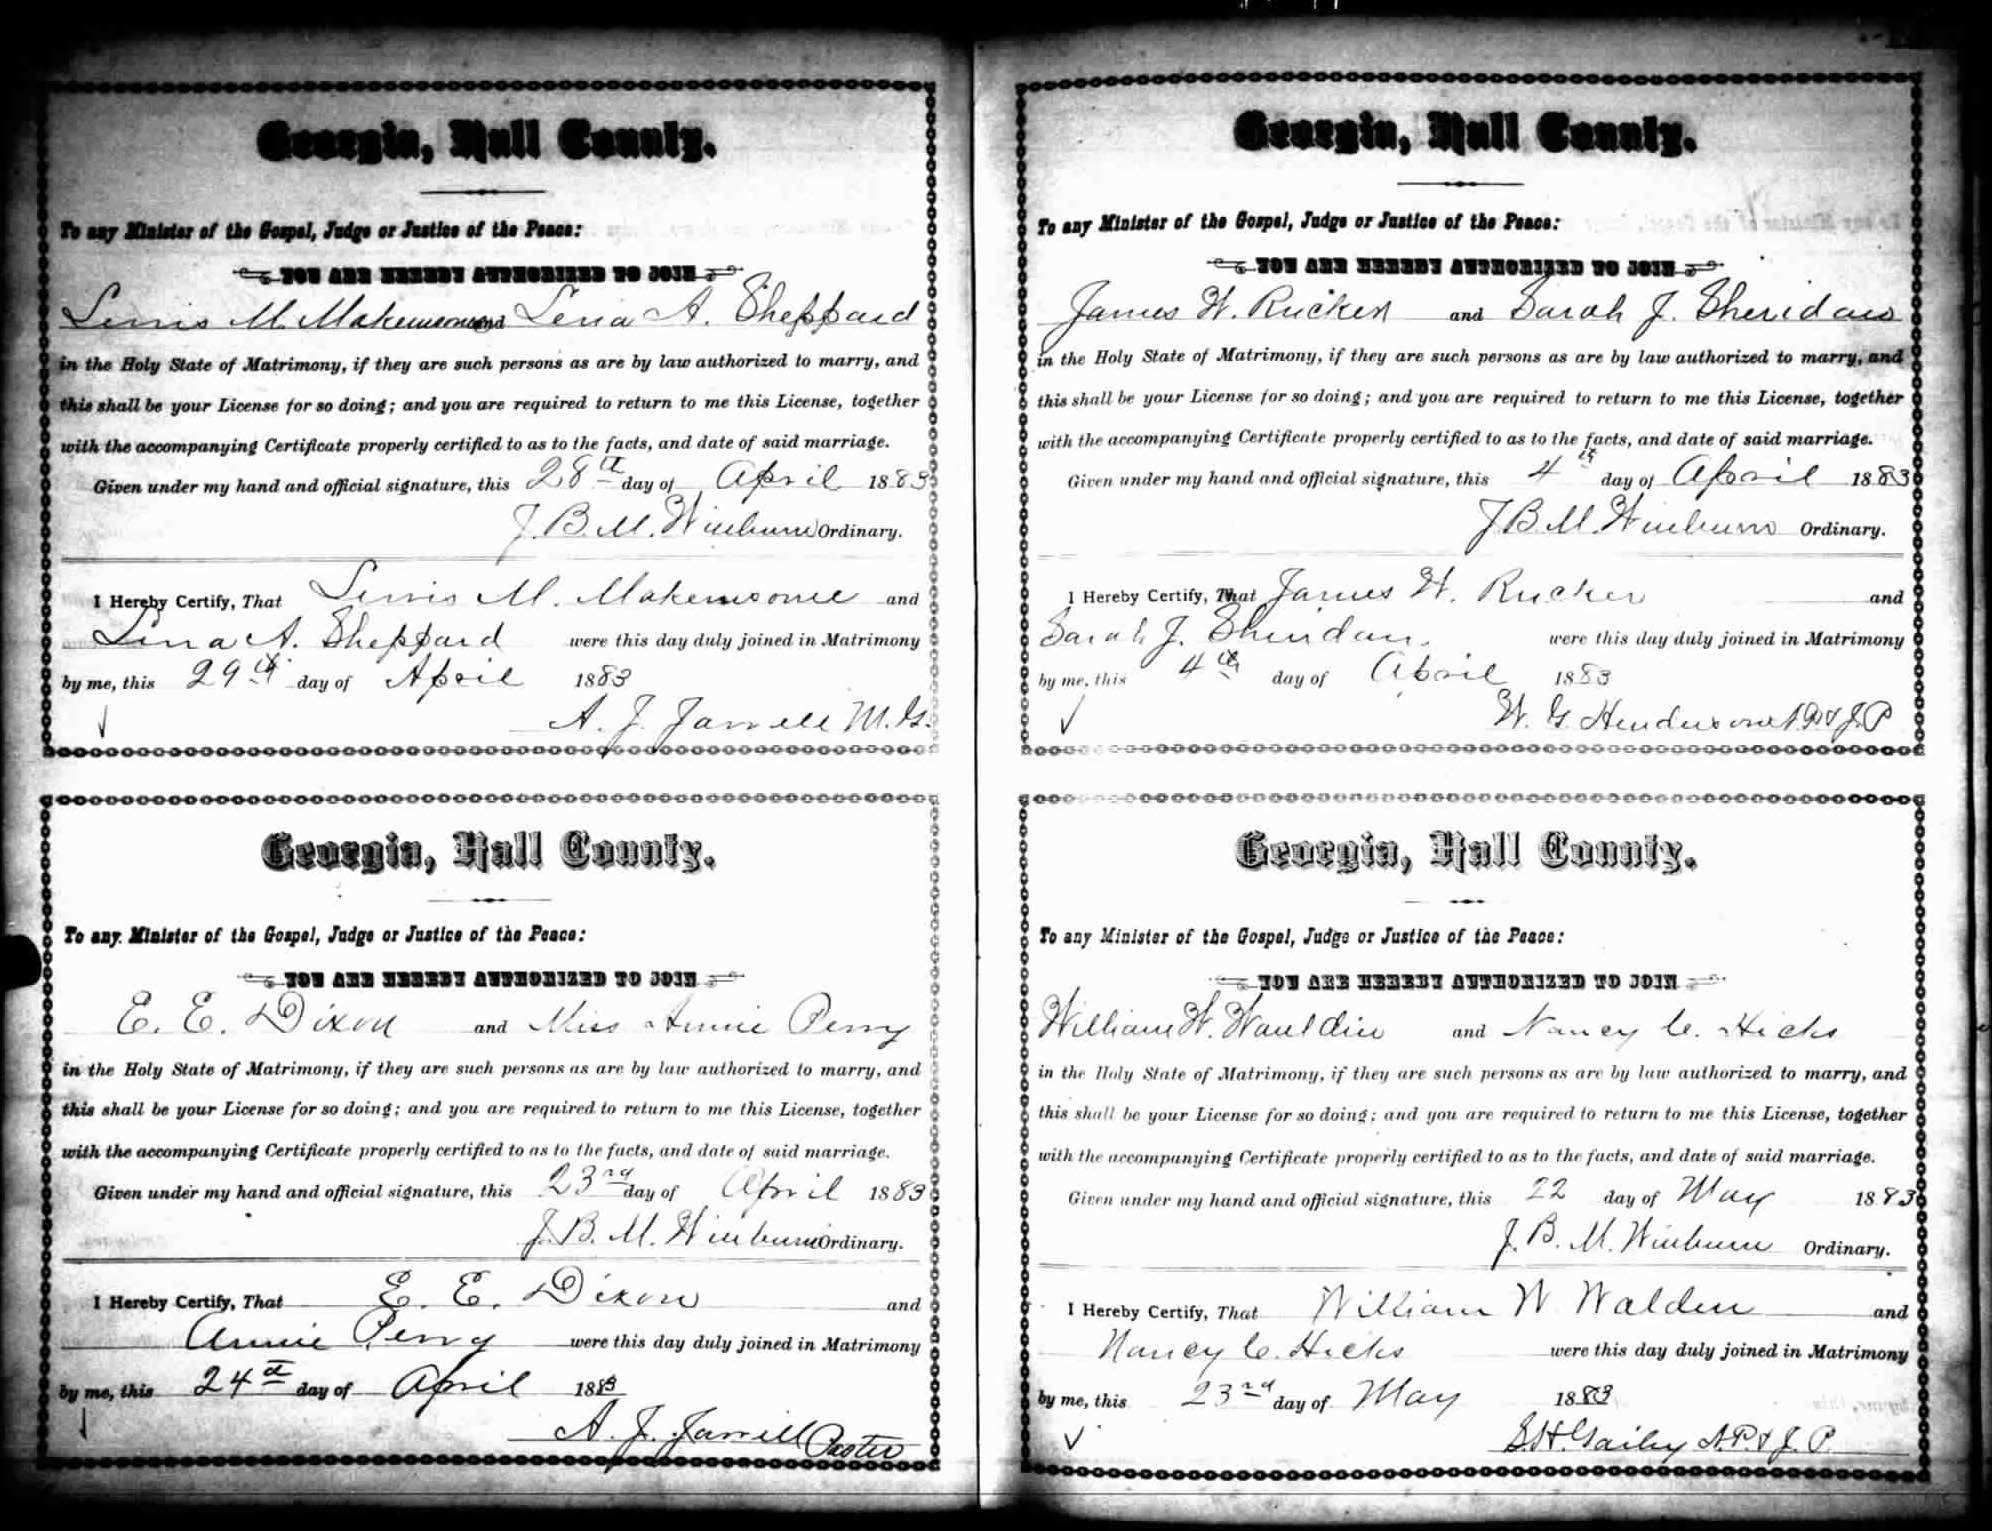 Georgia, Hall County.
To any Minister of the Gospel, Judge or Justice of the Peace:
YOU ARE HEREBY AUTHORIZED TO JOIN
Lewis M. Makemson and Lena A. Sheppard
in the Holy State of Matrimony, if they are such persons as are by law authorized to marry, and
this shall be your License for so doing; and you are required to return to me this License, together
with the accompanying Certificate properly certified to as to the facts, and date of said marriage.
Given under my hand and official signature, this 28th day of April 1883
J. B. M. Winburn Ordinary.
I Hereby Certify, That M. Makemsone and
Lena A. Sheppard were this day duly joined in Matrimony
by me, this 29th day of April 1883
A. J. Jarrell M. G.
Georgia, Hall County.
To any Minister of the Gospel, Judge or Justice of the Peace:
YOU ARE HEREBY AUTHORIZED TO JOIN
E. E. Dixon and Miss Annie Perry
in the Holy State of Matrimony, if they are such persons as are by law authorized to marry, and
this shall be your License for so doing; and you are required to return to me this License, together
with the accompanying Certificate properly certified to as to the facts, and date of said marriage.
Given under my hand and official signature, this 23rd day of April 1883
J. B. M. Winburn Ordinary.
I Hereby Certify, That E. E. Dixon and
Annie Perry were this day duly joined in Matrimony
by me, this 24th day of April 1883
A. J. Jarrell Pastor
Georgia, Hall County.
To any Minister of the Gospel, Judge or Justice of the Peace:
YOU ARE HEREBY AUTHORIZED TO JOIN
James W. Rucker and Sarah J. Sheridan
in the Holy State of Matrimony, if they are such persons as are by law authorized to marry, and
this shall be your License for so doing; and you are required to return to me this License, together
with the accompanying Certificate properly certified to as to the facts, and date of said marriage.
Given under my hand and official signature, this 4th day of April 1883
J. B. M. Winburn Ordinary.
I Hereby Certify, That James W. Rucker and
Sarah J. Sheridan. were this day duly joined in Matrimony
by me, this 4th day of April 1883
W. G. Henderson N. P. & J. P
Georgia, Hall County.
To any Minister of the Gospel, Judge or Justice of the Peace:
YOU ARE HEREBY AUTHORIZED TO JOIN
William W. Wauldin and Nancy C. Hicks
in the Holy State of Matrimony, if they are such persons as are by law authorized to marry, and
this shall be your License for so doing; and you are required to return to me this License, together
with the accompanying Certificate properly certified to as to the facts, and date of said marriage.
Given under my hand and official signature, this 22 day of May 1883
J. B. M. Winburn Ordinary.
I Hereby Certify, That William W Walden and
Nancy C. Hicks were this day duly joined in Matrimony
by me, this 23rd day of May 1883
S. H. Gailey N. P. & J. P.